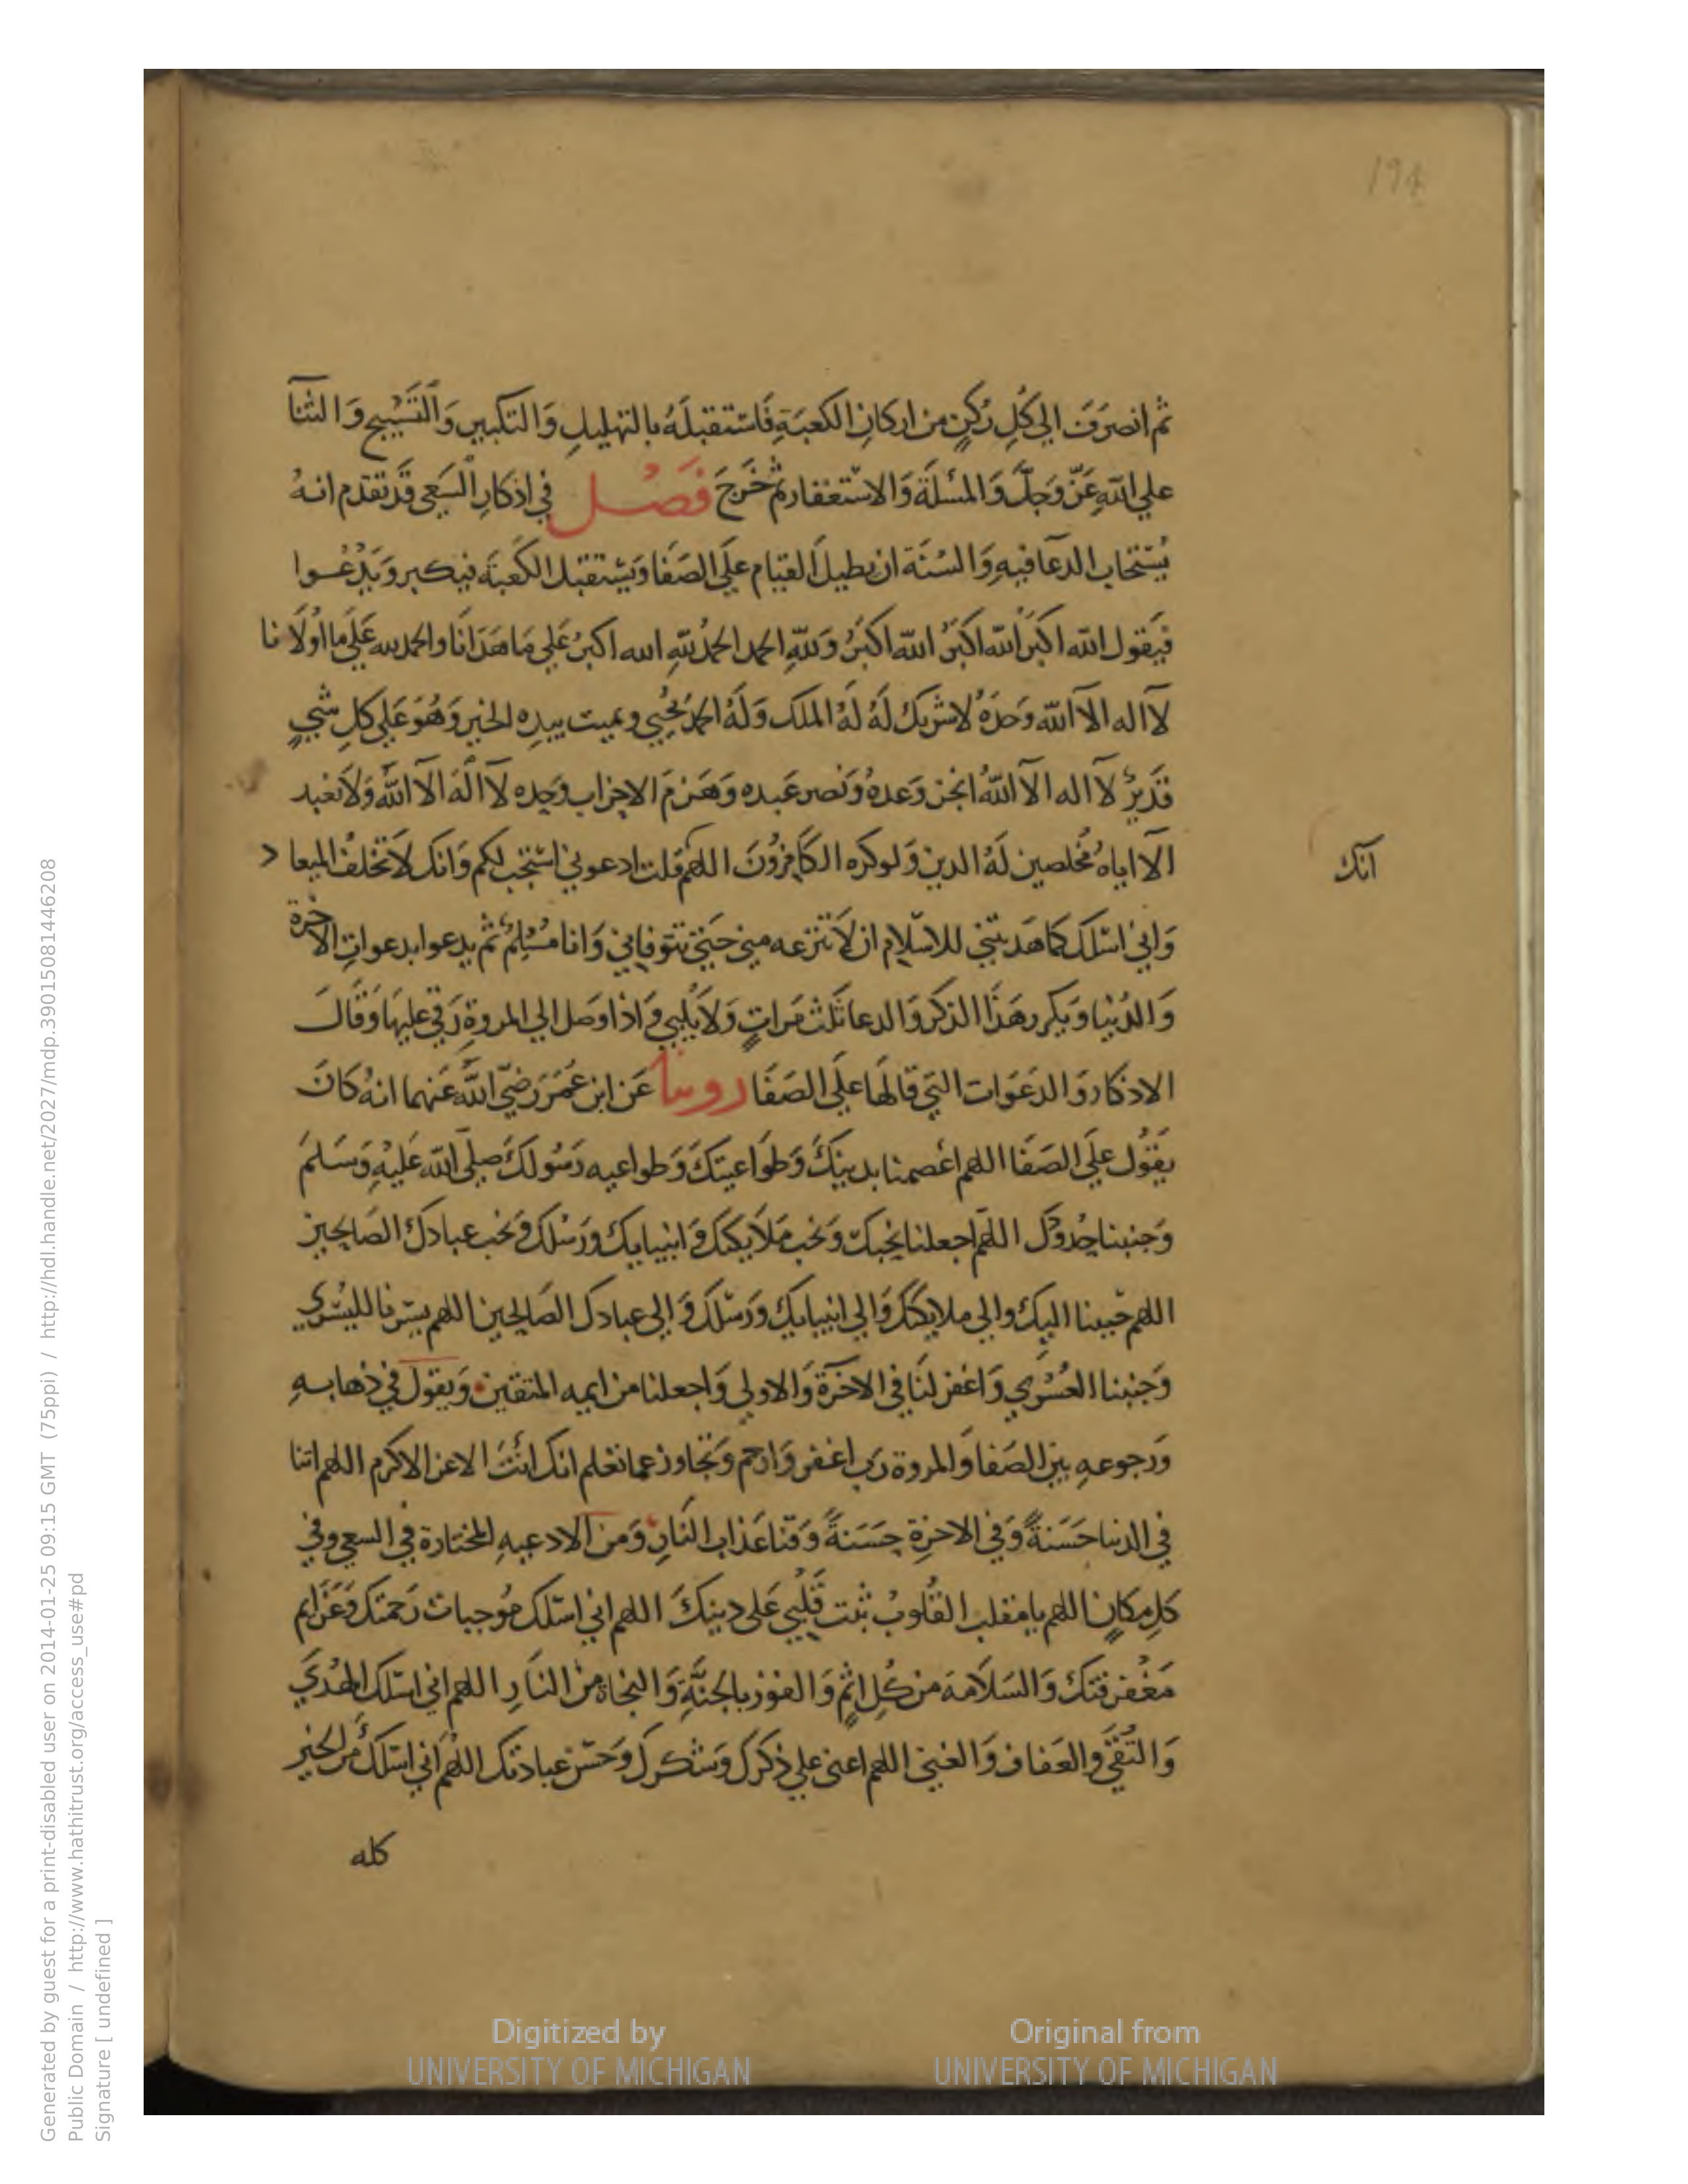 194
ثم انصرَفَ الي كُلِ رُكنٍ من اركانِ الكعبَةِ فَاسْتقبلَهُ بالتهليلِ وَالتكبيرِ وَالتَسْبيحِ وَالثنآ
علي اللهِ عَزّ وَجلَّ وَالمسْلَةَ وَالاسْتغفار ثم خَرجَ فَصْل في اذكارِ السَعي قَد تقدم انهُ
يُسْتحَاب الدعَا فيهِ وَالسُنَة ان يطيلَ القيَام علَي الصَفَا وَيَسْتقبل الكعبَة فيكبر وَيَدْعُوا
فيَقول الله اكبَر الله اكبَرُ الله اكبَرُ وَللهِ الحمد الحمدُ للهِ الله اكبرُ عَلي مَا هَدَانَا والحمد لله عَلَي ما اَولَانا
لآاله الآ الله وَحدَهُ لَاشرَيك لَهُ لَهُ الملك وَلَهُ الحمدُ يُحيي ويميت بيدِه الخير وَهُوَ عَلي كلِ شيءٍ
قَدَيرٌ لآاله الآ اللهُ انجز وَعدهُ وَنصر عَبده وَهَزمَ الاحزاب وَحده لآالَه الآ اللهُ وَلَا نعْبد
الآ اياهُ مُخلصين لَهُ الدين وَلو كره الكَافرُونَ اللهم قلت ادعوني اسْتجب لكم وَانك لَا تخلفُ الميعاد
انك
وَاني اسْلك كما هَديتني للاسْلَام ان لَا تنزعه مني حَتي تتوفاني وَانا مُسْلِمٌ ثم يدعوا بدعواتِ الاخرة
وَالدُنيا وَيكرر هَذَا الذكر وَالدعا ثَلث مَراتٍ وَلَا يُلبي وَاذا وصَل الي المروةِ رَقي عليهَا وَقَالَ
الاذكار وَالدعَوَات التي قالهَا علَي الصَفَا روينا عَن ابن عُمَرَ رَضيَ اللهُ عَنهما انهُ كَانَ
يقوُل علَي الصَفَا اللهم اعْصمنا بدينكَ وَطوَاعيتكَ وَطواعيه رَسُولكَ صلي الله عَليْهِ وَسَلمَ
وَجنبنا حدُودَك اللهم اجعلنا نحبكَ وَنحب مَلَايكتك وَانبيايك ورَسْلك وَنحب عبادك الصَالحين
اللهم حَببنا اليك والي ملايكتك وَالي انبيايك ورَسْلك وَالي عبادك الصَالحين اللهم يسّرنا لليُسْري
وَجنبنا العُسْري وَاغفر لنَا في الاخرَة وَالاولي وَاجعلنا من ايمه المتقين وَيقول في ذهابهِ
وَرجوعهِ بين الصَفا وَالمروة رَب اغفر وَارحم وَتجاوز عما تعْلم انك انْتَ الاعز الاكرم اللهم اتنا
في الدنيا حَسَنةً وَفي الاخرَة حسَنةً وَقنا عَذاب النَارِ وَمن الادعيهِ المختارة في السعي وفي
كلِ مكانٍ اللهم يا مقلب القلُوبُ ثبت قَلْبي عَلي دينكَ اللهم اني اسْلك مُوجبات رَحمتك وَعَزايم
مَغْفرتك وَالسَلَامة من كُلِ اثمٍ وَالفوز بالجنَّةِ وَالنجاة منْ النَارِ اللهم اني اسْلك الهُدَي
وَالتُقي وَالعَفاف وَالغني اللهم اعني علي ذكرك وَشكرك وَحسْن عبادتك اللهُم اني اسْلكَ من الخير
كله
Digitized by
UNIVERSITY OF MICHIGAN
Original from
UNIVERSITY OF MICHIGAN
Generated by guest for a print-disabled user on 2014-01-25 09:15 GMT (75ppi) / http://hdl.handle.net/2027/mdp.39015081446208
Public Domain / http://www.hathitrust.org/access_use#pd
Signature [ undefined ]